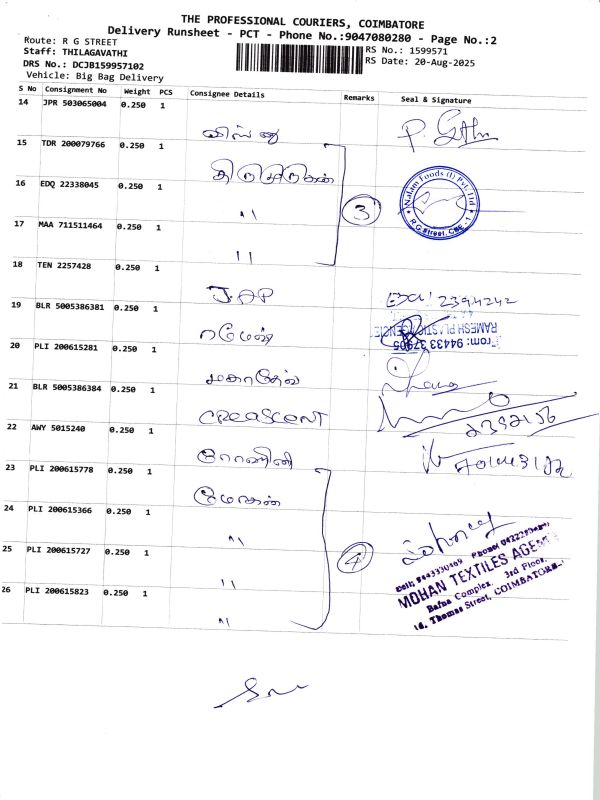 THE PROFESSIONAL COURIERS, COIMBATORE
Delivery Runsheet - PCT - Phone No.:9047080280 - Page No.:2
Route: R G STREET
RS No.: 1599571
Staff: THILAGAVATHI
RS Date: 20-Aug-2025
DRS No.: DCJB159957102
Vehicle: Big Bag Delivery
S No Consignment No Weight PCS Consignee Details Remarks Seal & Signature
14 JPR 503065004 0.250 1
விஷ்ணு
15 TDR 200079766 0.250 1
திருமுருகன்
16 EDQ 22338045 0.250 1
" 3
Nalam Foods (I) Pvt. Ltd
R G Street, CBE - 1
17 MAA 711511464 0.250 1
"
18 TEN 2257428 0.250 1
J.A.P
19 BLR 5005386381 0.250 1
ரமேஷ்
RAMESH PLASTIC AGENCIE
From: 94433 37905
20 PLI 200615281 0.250 1
மகாதேவ்
21 BLR 5005386384 0.250 1
CREASCENT
2392156
22 AWY 5015240 0.250 1
ரோஹினி
23 PLI 200615778 0.250 1
மோகன்
24 PLI 200615366 0.250 1
"
25 PLI 200615727 0.250 1
" 4
MOHAN TEXTILES AGEN
Bafna Complex, 3rd Floor,
16, Thomas Street, COIMBATORE
26 PLI 200615823 0.250 1
"